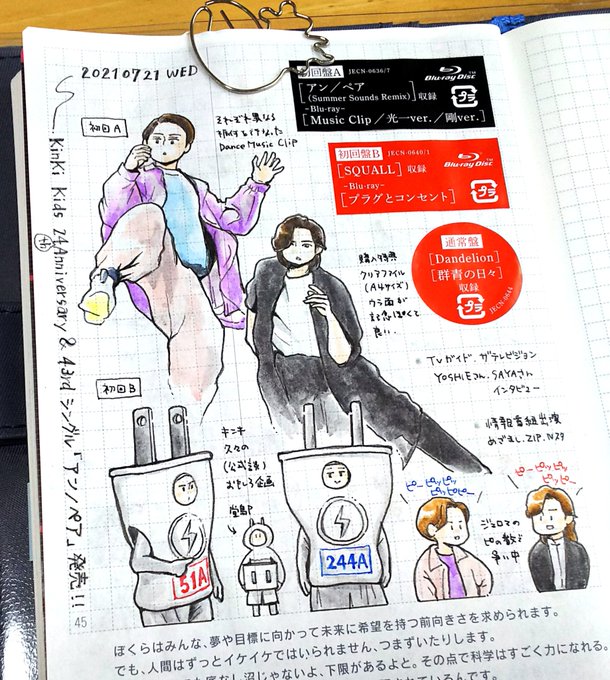 20210721 WED
KinKi Kids 24 Anniversary & 43rd シングル「アン/ペア」発売!!
初回A
それぞれ異なる
振付を行なった
Dance Music Clip
初回盤A JECN-0636/7
Blu-ray Disc
[アン/ペア
(Summer Sounds Remix)]収録
-Blu-ray-
[Music Clip/光一ver./剛ver.]
プラ
初回盤B JECN-0640/1
Blu-ray Disc
[SQUALL] 収録
-Blu-ray-
[プラグとコンセント]
プラ
通常盤
[Dandelion]
[群青の日々]
収録
プラ
JECN-0644
購入特典
クリアファイル
(A4サイズ)
ウラ面が
ぽくて
良い。
TVガイド、ザテレビジョン
YOSHIEさん、SAYAさん
インタビュー
情報番組出演
めざまし、ZIP、Nスタ
初回B
キンキ
久々の
(公式談)
おもしろ企画
堂島P
51A
244A
ピーピッピッ
ピッピピー
ピーピッピッ
ピッピー
ジェロマの
ピの数で
争い中
45
ぼくらはみんな、夢や目標に向かって未来に希望を持つ前向きさを求められます。
でも、人間はずっとイケイケではいられません、つまずいたりします。
底なし沼じゃないよ、下限があるよと。その点で科学はすごく力になれる。